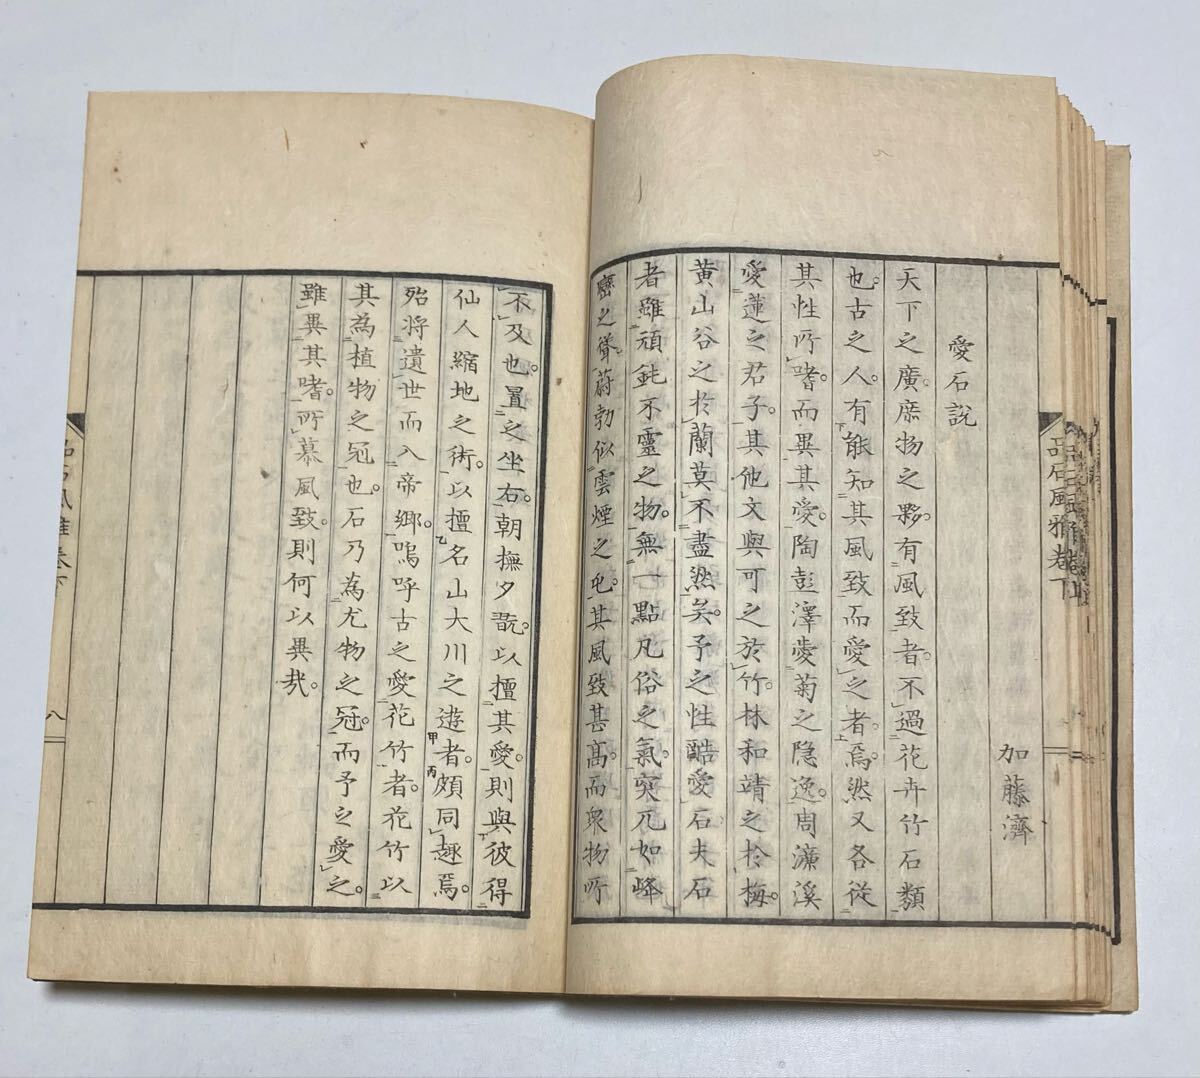 品石風雅卷下
愛石說
加藤濟
天下之廣。庶物之夥。有風致者。不過花卉竹石類
也。古之人。有能知其風致而愛之者。焉然又各從
其性所嗜而異其愛。陶彭澤愛菊之隱逸。周濂溪
愛蓮之君子。其他文與可之於竹。林和靖之於梅。
黃山谷之於蘭莫不盡然矣。予之性酷愛石夫石
者雖頑鈍不靈之物。無一點凡俗之氣。突兀如峰
巒之聳。蔚勃似雲煙之屯。其風致甚高。而衆物所
不及也。置之坐右。朝撫夕翫。以擅其愛。則與彼得
仙人縮地之術。以擅名山大川之遊者。頗同趣焉。
殆將遺世而入帝鄉。嗚呼古之愛花竹者。花竹以
其為植物之冠也。石乃為尤物之冠。而予之愛之。
雖異其嗜。所慕風致則何以異哉。
品石風雅卷下
八